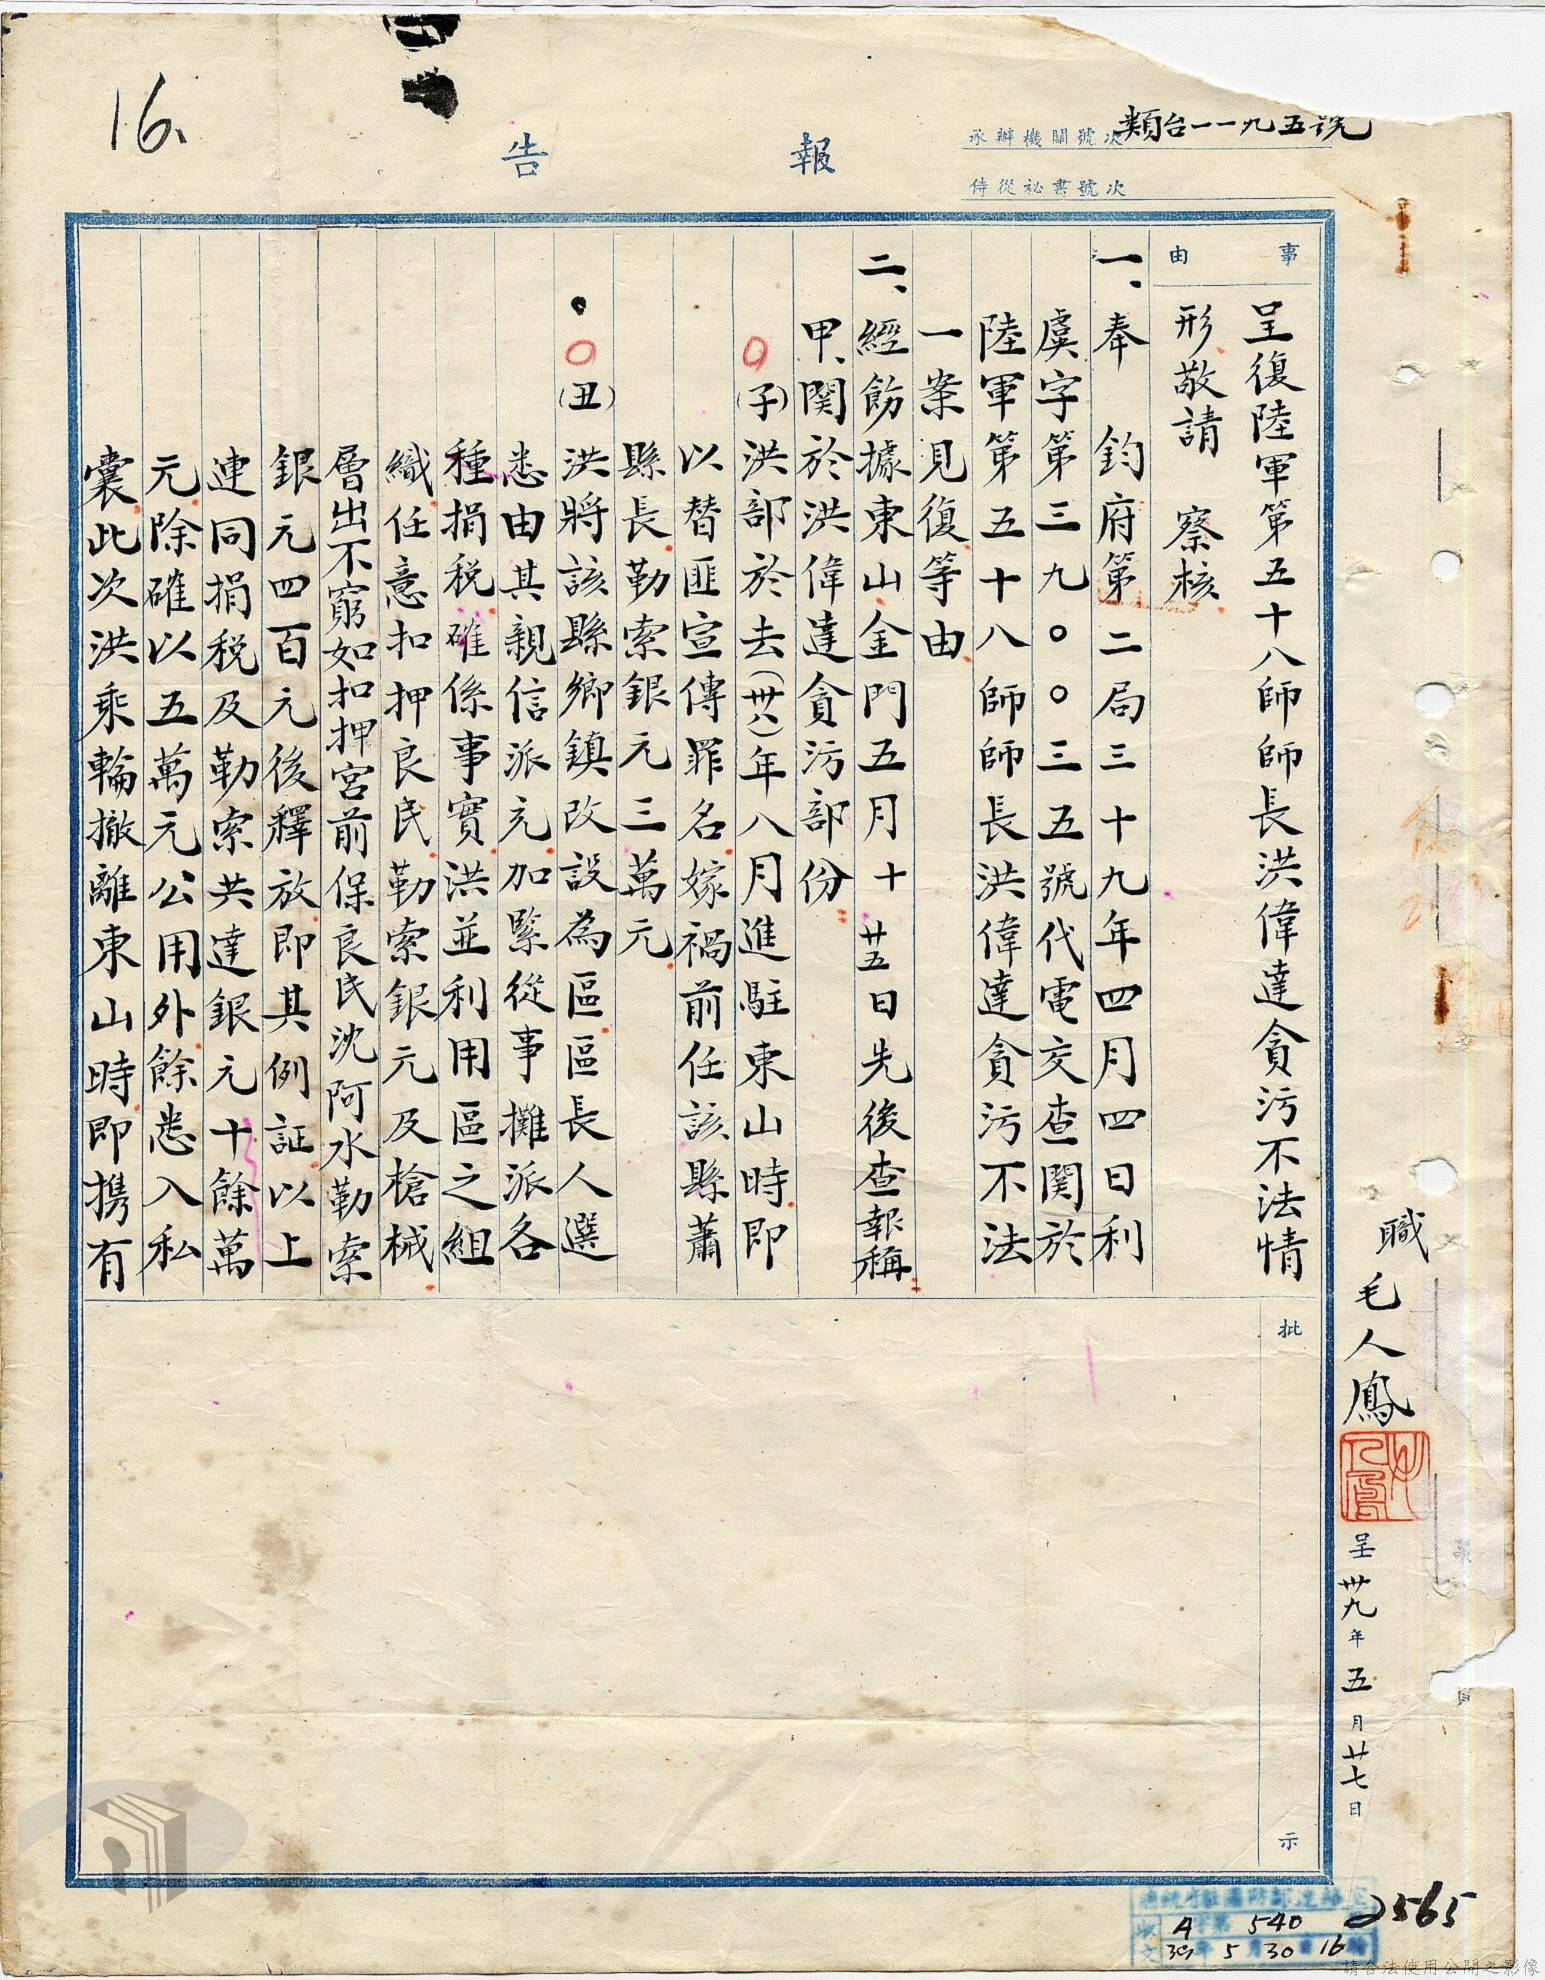 16.
報告
承辦機關號次 類台一一九五號
侍從秘書號次
職毛人鳳
呈 卅九年五月廿七日
事由
呈復陸軍第五十八師師長洪偉達貪污不法情
形敬請 察核
一、奉 鈞府第二局三十九年四月四日利
虞字第三九〇〇三五號代電交查関於
陸軍第五十八師師長洪偉達貪污不法
一案見復等由
二、經飭據東山金門五月十廿五日先後查報稱
甲、関於洪偉達貪污部份
(子)洪部於去(卅八)年八月進駐東山時即
以替匪宣傳罪名嫁禍前任該縣蕭
縣長勒索銀元三萬元
(丑)洪將該縣鄉鎮改設為區區長人選
悉由其親信派充加緊從事攤派各
種捐税確係事實洪並利用區之組
織任意扣押良民勒索銀元及槍械
層出不窮如扣押宮前保良民沈阿水勒索
銀元四百元後釋放即其例証以上
連同捐税及勒索共達銀元十餘萬
元除確以五萬元公用外餘悉入私
囊此次洪乘輪撤離東山時即携有
批示
總統府駐國防部連絡室
收文 A字第 540
39年5月30日16時
2565
請合法使用公開之影像